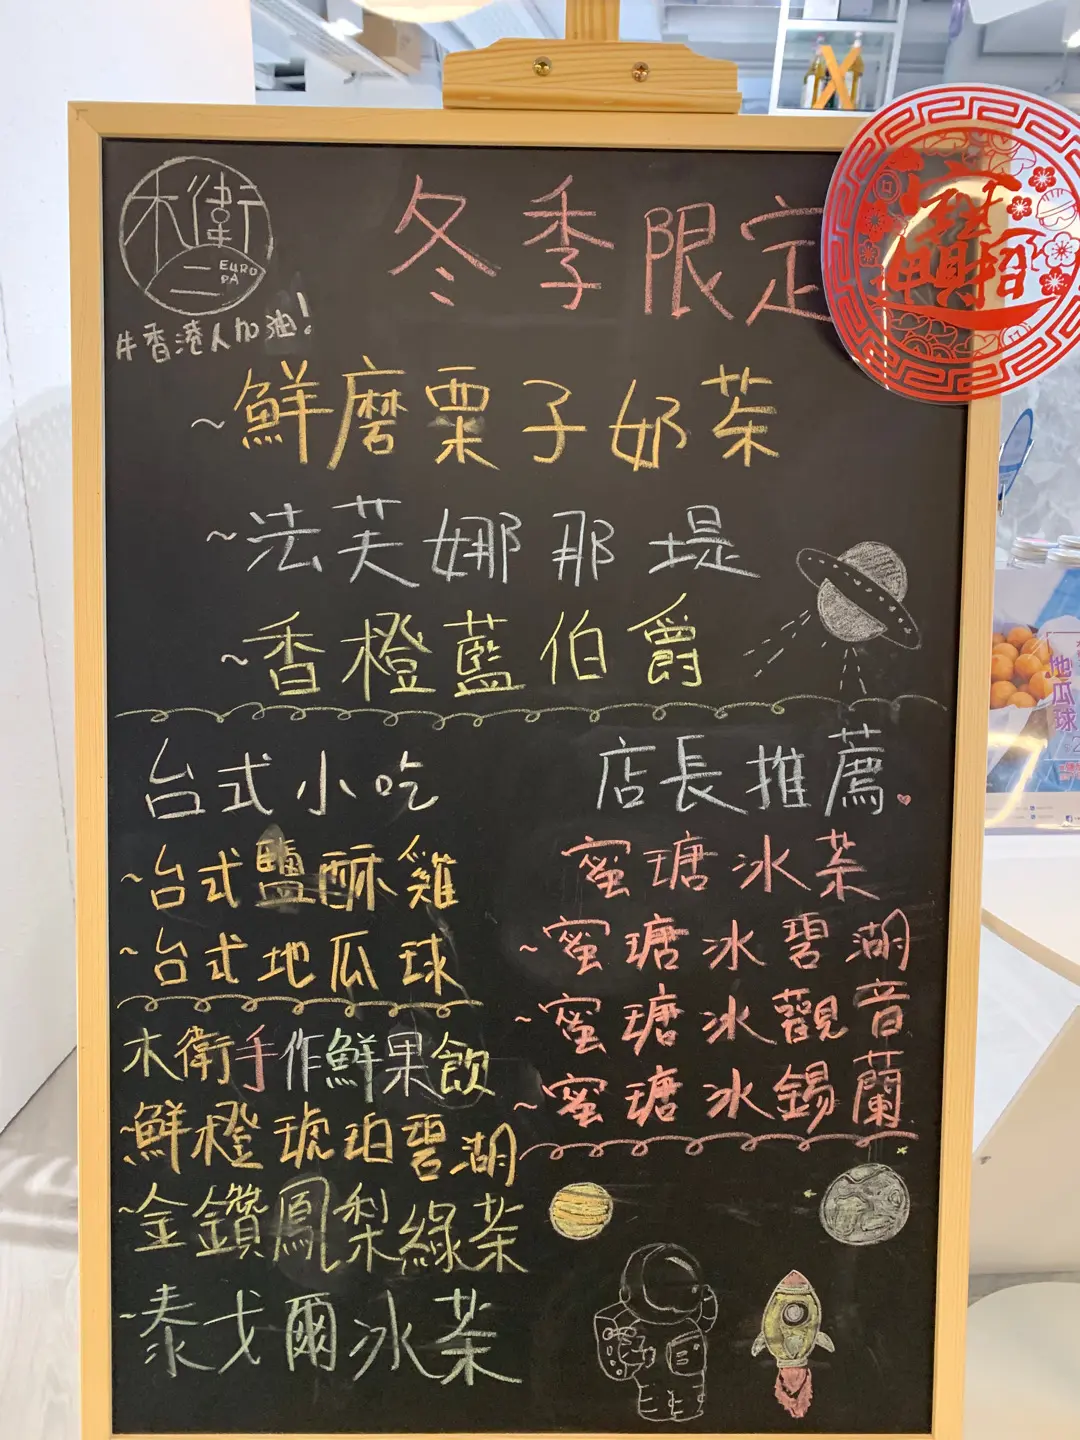 木衛
二 EUROPA
#香港人加油!
冬季限定
~鮮磨栗子奶茶
~法芙娜那堤
~香橙藍伯爵
台式小吃
~台式鹽酥雞
~台式地瓜球
店長推薦
蜜瑭冰茶
~蜜瑭冰碧湖
~蜜瑭冰觀音
~蜜瑭冰錫蘭
木衛手作鮮果飲
~鮮橙琥珀碧湖
~金鑽鳳梨綠茶
~泰戈爾冰茶
地瓜球